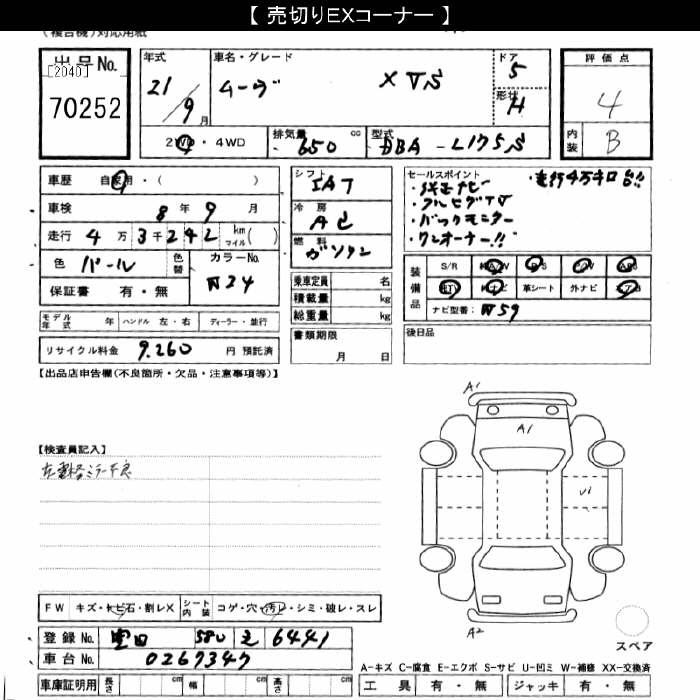 【 売切りEXコーナー 】
(複合機)対応用紙
出品No.
[2040]
70252
年式
21/9月
車名・グレード
ムーヴ X VS
ドア
5
形状
H
評価点
4
内装
B
2WD・4WD
排気量
650 cc
型式
DBA - L175S
車歴 自家用・( )
車検 8年 9月
走行 4万3千242 km マイル( )
色 パール
色替
カラーNo.
W24
保証書 有・無
シフト
IAT
冷房
AC
燃料
ガソリン
乗車定員 名
積載量 kg
総重量 kg
セールスポイント
・走行4万キロ台!!
・純正ナビ
・フルセグTV
・バックモニター
・ワンオーナー!!
装備品
S/R
革シート 外ナビ
ナビ型番: W59
モデル年式 年 ハンドル 左・右 ディーラー・並行
リサイクル料金 9,260 円 預託済
書類期限
月 日
後日品
【出品店申告欄(不良箇所・欠品・注意事項等)】
【検査員記入】
左電格ミラー不良
A1
A1
U1
A2
スペア
FW キズ・トビ石・割レX
シート内装 コゲ・穴・汚レ・シミ・破レ・スレ
登録No. 豊田 580 そ 6441
車台No. 0267347
A−キズ C−腐食 E−エクボ S−サビ U−凹ミ W−補修 XX−交換済
車庫証明用 長さ cm 幅 cm 高さ cm
工具 有・無 ジャッキ 有・無